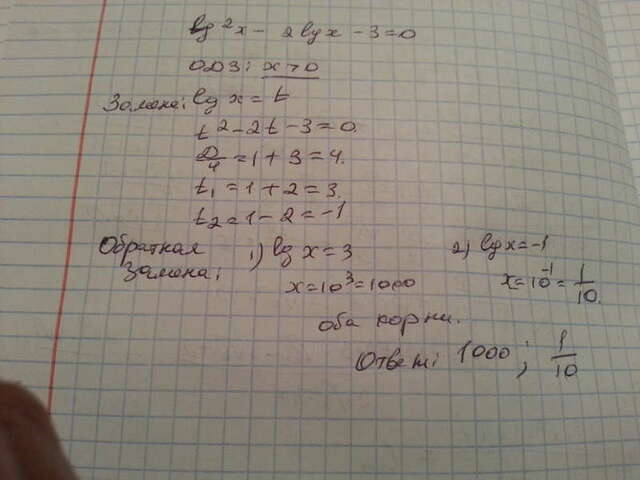 lg²x - 2lgx - 3 = 0
ОДЗ: x > 0
Замена: lg x = t
t² - 2t - 3 = 0.
D/4 = 1 + 3 = 4.
t₁ = 1 + 2 = 3.
t₂ = 1 - 2 = -1
Обратная замена: 1) lg x = 3
x = 10³ = 1000
2) lg x = -1
x = 10⁻¹ = 1/10.
оба корни.
Ответ: 1000; 1/10